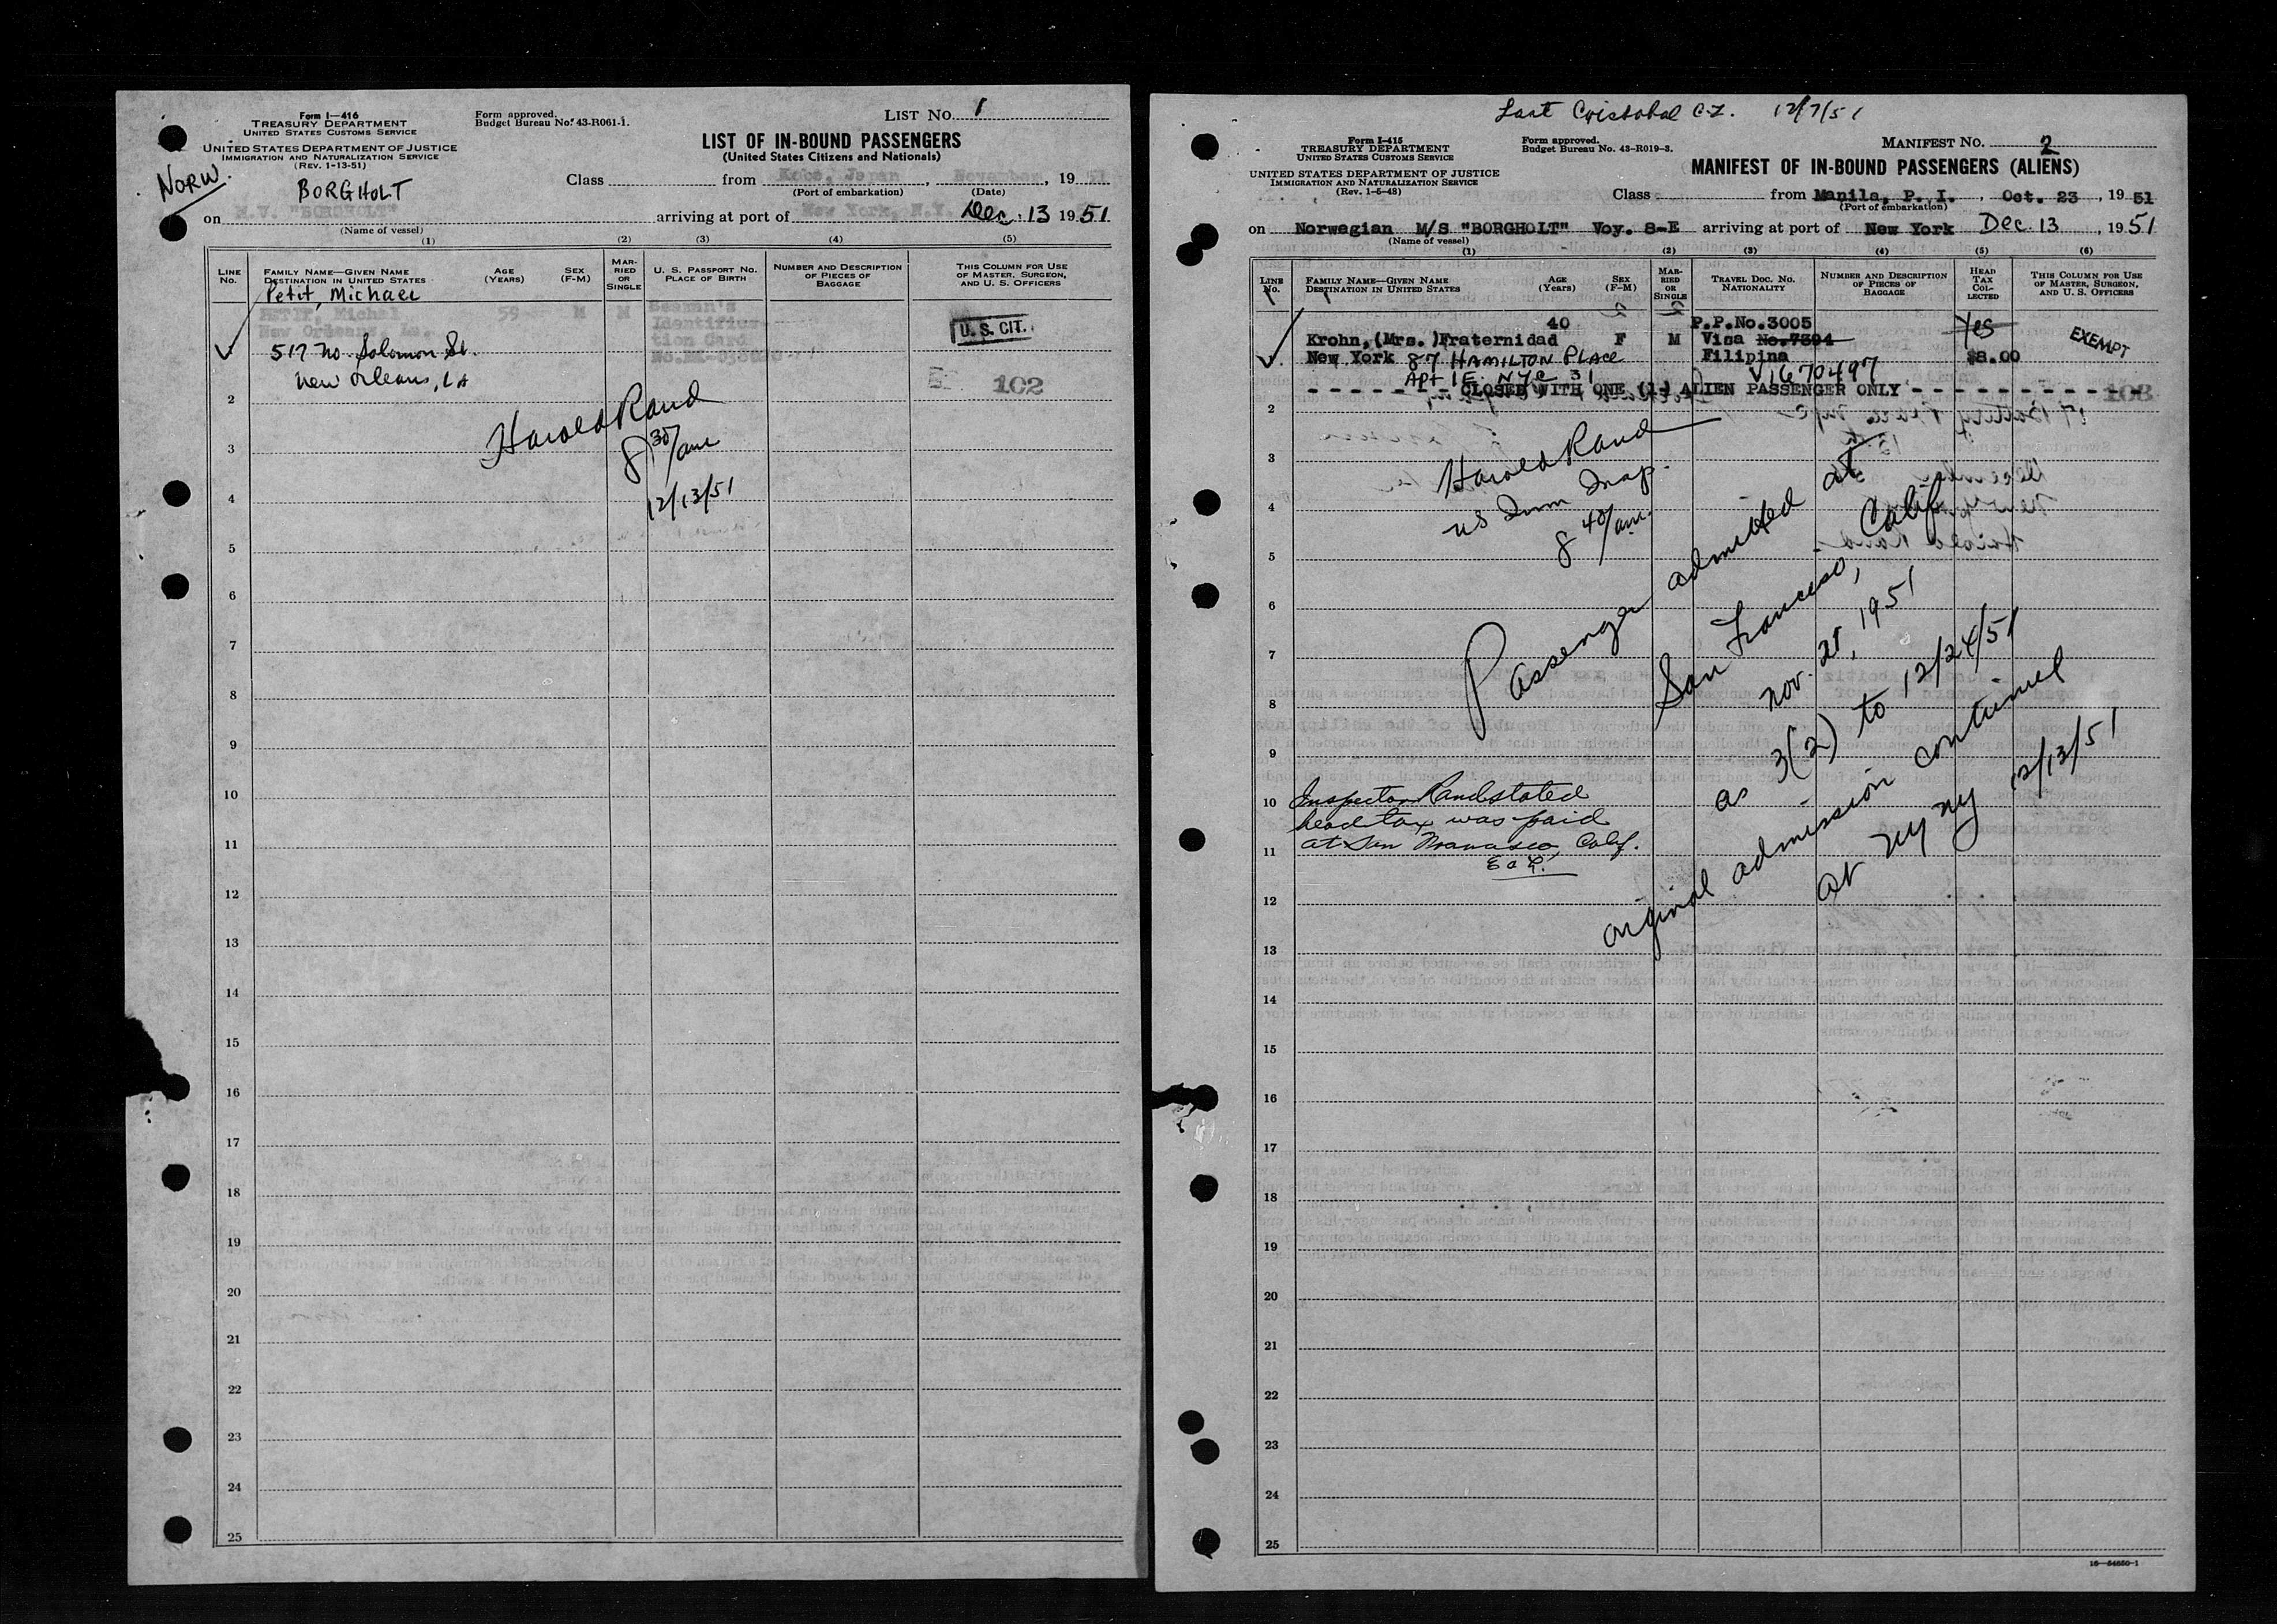 Form I—416
TREASURY DEPARTMENT
UNITED STATES CUSTOMS SERVICE
UNITED STATES DEPARTMENT OF JUSTICE
IMMIGRATION AND NATURALIZATION SERVICE
(REV. 1-13-51)
Form approved.
Budget Bureau No. 43-R061-1.
LIST NO. 1
LIST OF IN-BOUND PASSENGERS
(United States Citizens and Nationals)
NORW.
BORGHOLT
Class from Kobe, Japan, November, 1951
(Port of embarkation) (Date)
on M.V. "BORGHOLT" arriving at port of New York, N.Y. Dec. 13 1951
(Name of vessel)
(1) (2) (3) (4) (5)
LINE NO.
FAMILY NAME—GIVEN NAME
DESTINATION IN UNITED STATES
AGE (YEARS)
SEX (F-M)
MARRIED OR SINGLE
U. S. PASSPORT NO.
PLACE OF BIRTH
NUMBER AND DESCRIPTION OF PIECES OF BAGGAGE
THIS COLUMN FOR USE OF MASTER, SURGEON, AND U. S. OFFICERS
Petit, Michael
PETIT, Michal 59 M M Seaman's
New Orleans, La. Identifica-
tion Card
U. S. CIT.
517 No. Solomon St.
New Orleans, LA
102
Harold Rand
8 30/am
12/13/51
2
3
4
5
6
7
8
9
10
11
12
13
14
15
16
17
18
19
20
21
22
23
24
25
Last Cristobal C.Z. 12/7/51
Form I-415
TREASURY DEPARTMENT
UNITED STATES CUSTOMS SERVICE
UNITED STATES DEPARTMENT OF JUSTICE
IMMIGRATION AND NATURALIZATION SERVICE
(Rev. 1-5-48)
Form approved.
Budget Bureau No. 43-R019-3.
MANIFEST NO. 2
MANIFEST OF IN-BOUND PASSENGERS (ALIENS)
Class from Manila, P. I., Oct. 23, 1951
(Port of embarkation)
on Norwegian M/S "BORGHOLT" Voy. 8-E arriving at port of New York Dec. 13, 1951
(Name of vessel)
(1) (2) (3) (4) (5) (6)
LINE NO.
FAMILY NAME—GIVEN NAME
DESTINATION IN UNITED STATES
AGE (Years)
SEX (F-M)
MARRIED OR SINGLE
TRAVEL DOC. NO.
NATIONALITY
NUMBER AND DESCRIPTION OF PIECES OF BAGGAGE
HEAD TAX COLLECTED
THIS COLUMN FOR USE OF MASTER, SURGEON, AND U. S. OFFICERS
40 P.P.No.3005 Yes
Krohn,(Mrs.)Fraternidad F M Visa No.7394 EXEMPT
New York 87 HAMILTON PLACE Filipina $8.00
Apt 1E. NYC 31 V1670497
- - - - - - - CLOSED WITH ONE (1) ALIEN PASSENGER ONLY - - - - - - - - - - - 103
Harold Rand
US Imm Insp.
8 40/am.
Passenger admitted at
San Francisco, Calif
Nov. 25, 1951
as 3(2) to 12/24/51
original admission continued
at NY NY 12/13/51
Inspector Rand stated
head tax was paid
at San Francisco, Calif.
2
3
4
5
6
7
8
9
10
11
12
13
14
15
16
17
18
19
20
21
22
23
24
25
16—54650-1